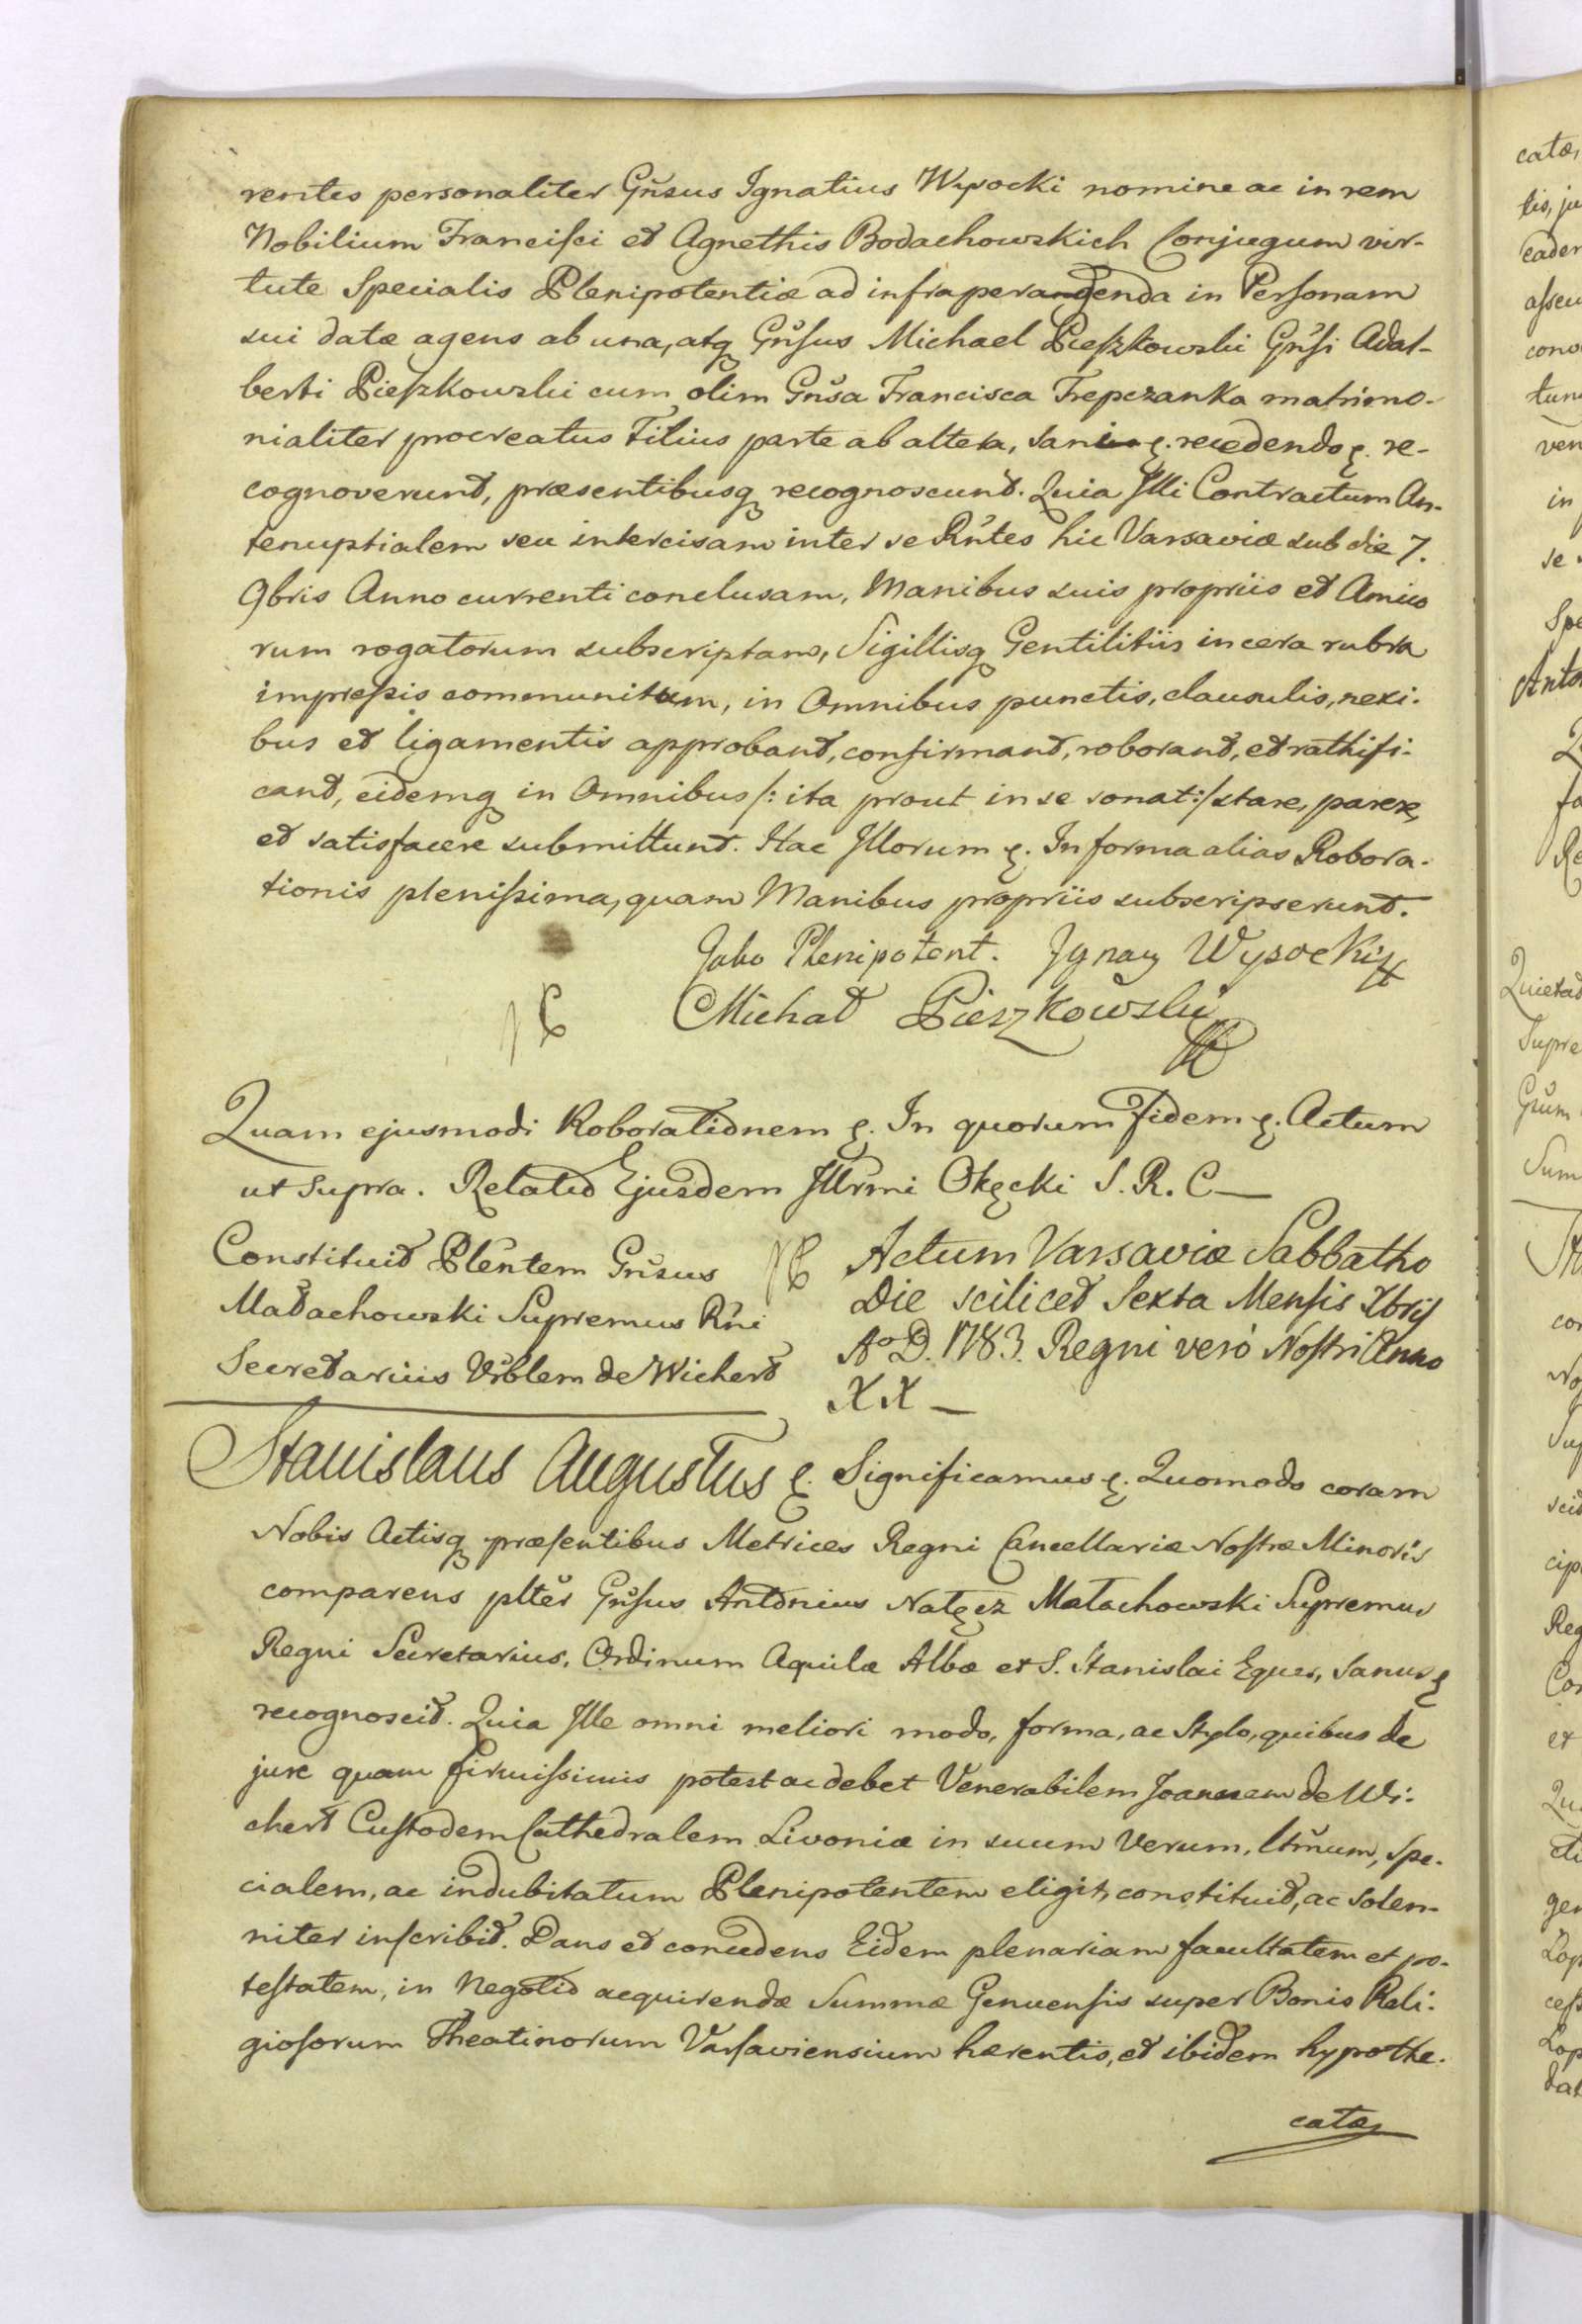 rentes personaliter Gn̄sus Ignatius Wysocki nomine ac in rem
Nobilium Francisci et Agnethis Bodachowskich Conjugum vir-
tute Specialis Plenipotentiæ ad infraperagenda in Personam
sui datæ agens ab una, atq Gn̄sus Michael Pieszkowski Gn̄si Adal-
berti Pieszkowski cum olim Gn̄sa Francisca Trepczanka matrimo-
nialiter procreatus Filius parte ab altera, sani ę. recedendo ę. re-
cognoverunt, præsentibusq recognoscunt. Quia Illi Contractum An-
tenuptialem seu intercisam inter se Rn̄tes hic Varsaviæ sub die 7.
9bris Anno currenti conclusam, Manibus suis propriis et Amico
rum rogatorum subscriptam, Sigillisq Gentilitiis in cera rubra
impressis communitam, in Omnibus punctis, clausulis, nexi-
bus et ligamentis approbant, confirmant, roborant, et rathifi-
cant, eidemq in Omnibus /: ita prout in se sonat :/ stare, parere,
et satisfacere submittunt. Hac Illorum ę. In forma alias Robora-
tionis plenissima, quam Manibus propriis subscripserunt.
Jako Plenipotent. Ignacy Wysocki
Michał Pieszkowski
Quam ejusmodi Roborationem ę. In quorum Fidem ę. Actum
ut supra. Relatio Ejusdem Illrmi Okęcki S. R. C—
Constituit Pleñtem Gn̄sus
Małachowski Supremus Rn̄i
Secretarius Vr̄blem de Wichert
Actum Varsaviæ Sabbatho
Die scilicet Sexta Mensis Xbris
Aº D. 1783. Regni verò Nostri Anno
XX —
Stanislaus Augustus ę. Significamus ę. Quomodo coram
Nobis Actisq præsentibus Metrices Regni Cancellariæ Nostræ Minoris
comparens pltēr Gn̄sus Antonius Nałęcz Małachowski Supremus
Regni Secretarius, Ordinum Aquilæ Albæ et S. Stanislai Eques, sanus ę
recognoscit. Quia Ille omni meliori modo, forma, ac Stylo, quibus de
jure quam firmissimis potest ac debet Venerabilem Joannem de Wi-
chert Custodem Cathedralem Livoniæ in suum Verum, ltm̄um, spe-
cialem, ac indubitatum Plenipotentem eligit, constituit, ac solen-
niter inscribit. Dans et concedens Eidem plenariam facultatem et po-
testatem, in Negotio acquirendæ Summæ Genuensis super Bonis Reli-
giosorum Theatinorum Varsaviensium hærentis, et ibidem hypothe-
catæ,